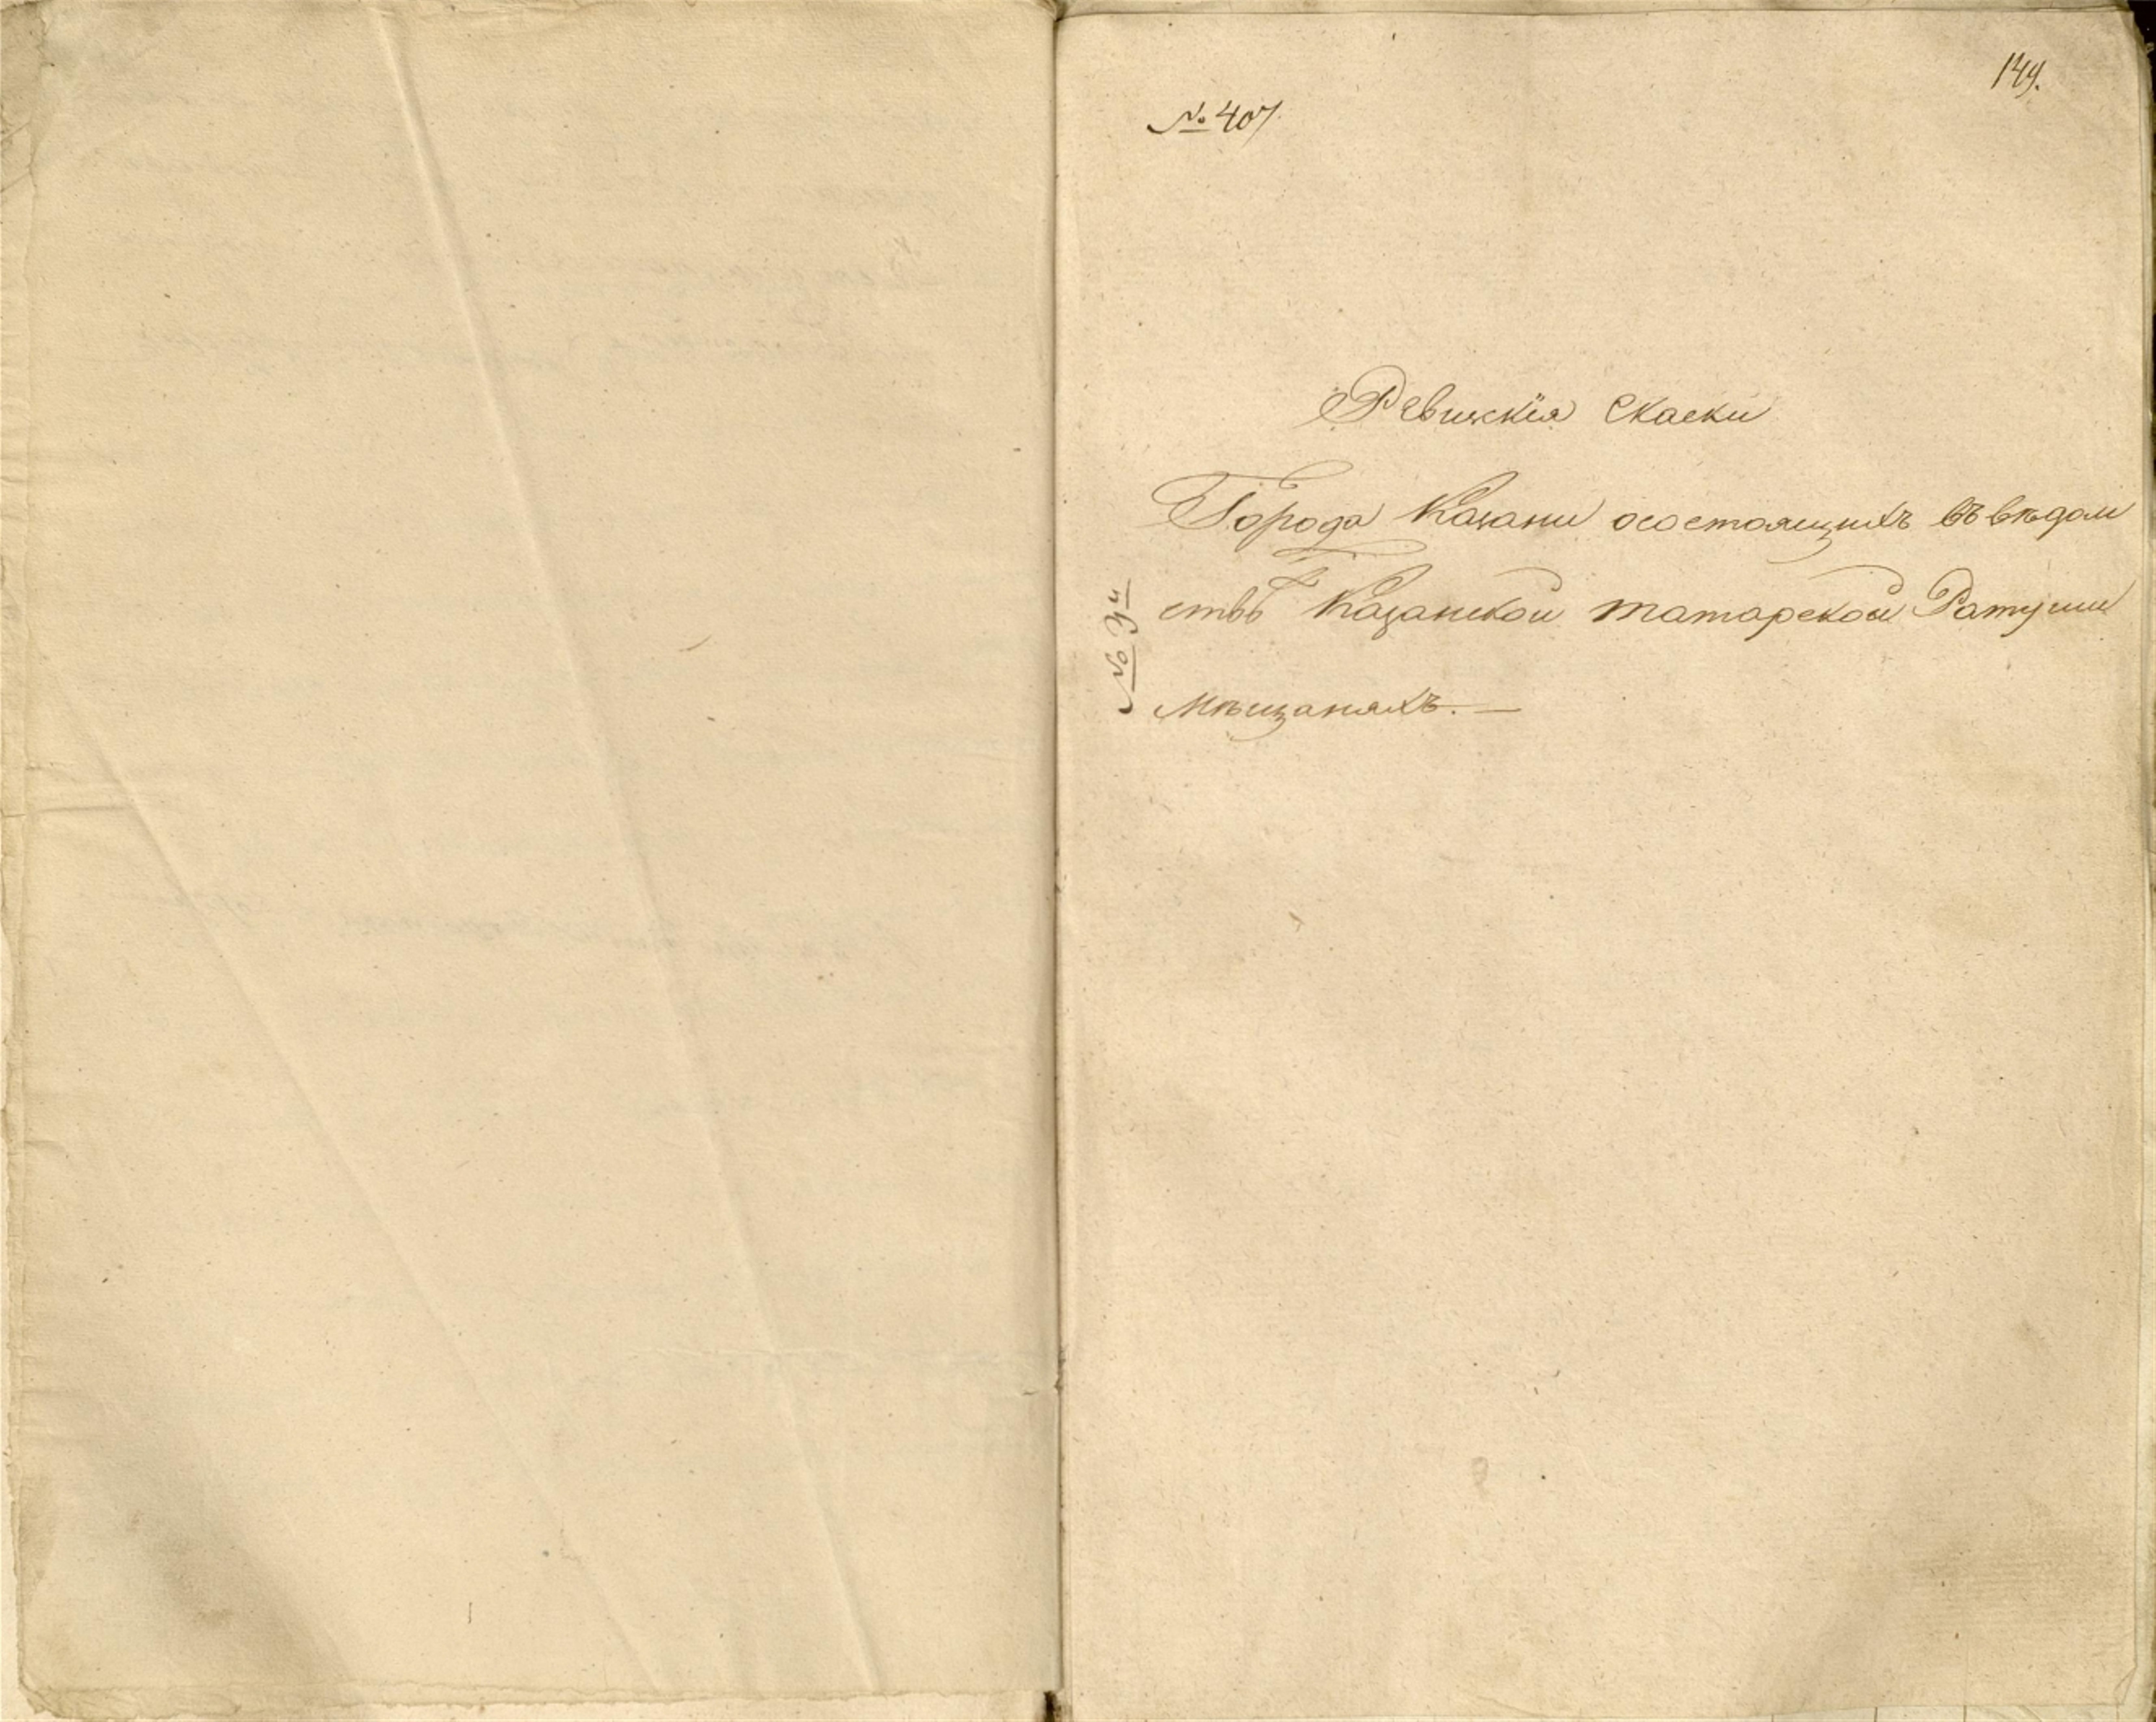 149.
№ 407.
Ревижскія Скаски
Города Казани осостоящихъ въ вѣдом
ствѣ Казанской татарской Ратуши
мѣщанахъ. —
№ 3й